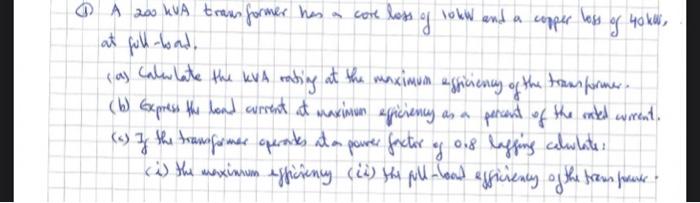 ① A 200 kVA transformer has a core loss of 10kW and a copper loss of 40kW,
at full-load.
(a) Calculate the kVA rating at the maximum efficiency of the transformer.
(b) Express the load current at maximum efficiency as a percent of the rated current.
(c) If the transformer operates at a power factor of 0.8 lagging calculate:
(i) the maximum efficiency (ii) the full-load efficiency of the transformer.